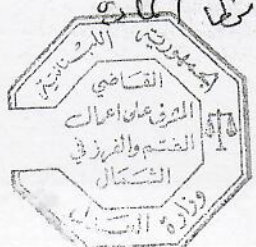 الجمهورية اللبنانية
القاضي
المشرف على اعمال
الختم والفرز في
الشمال
وزارة العدل